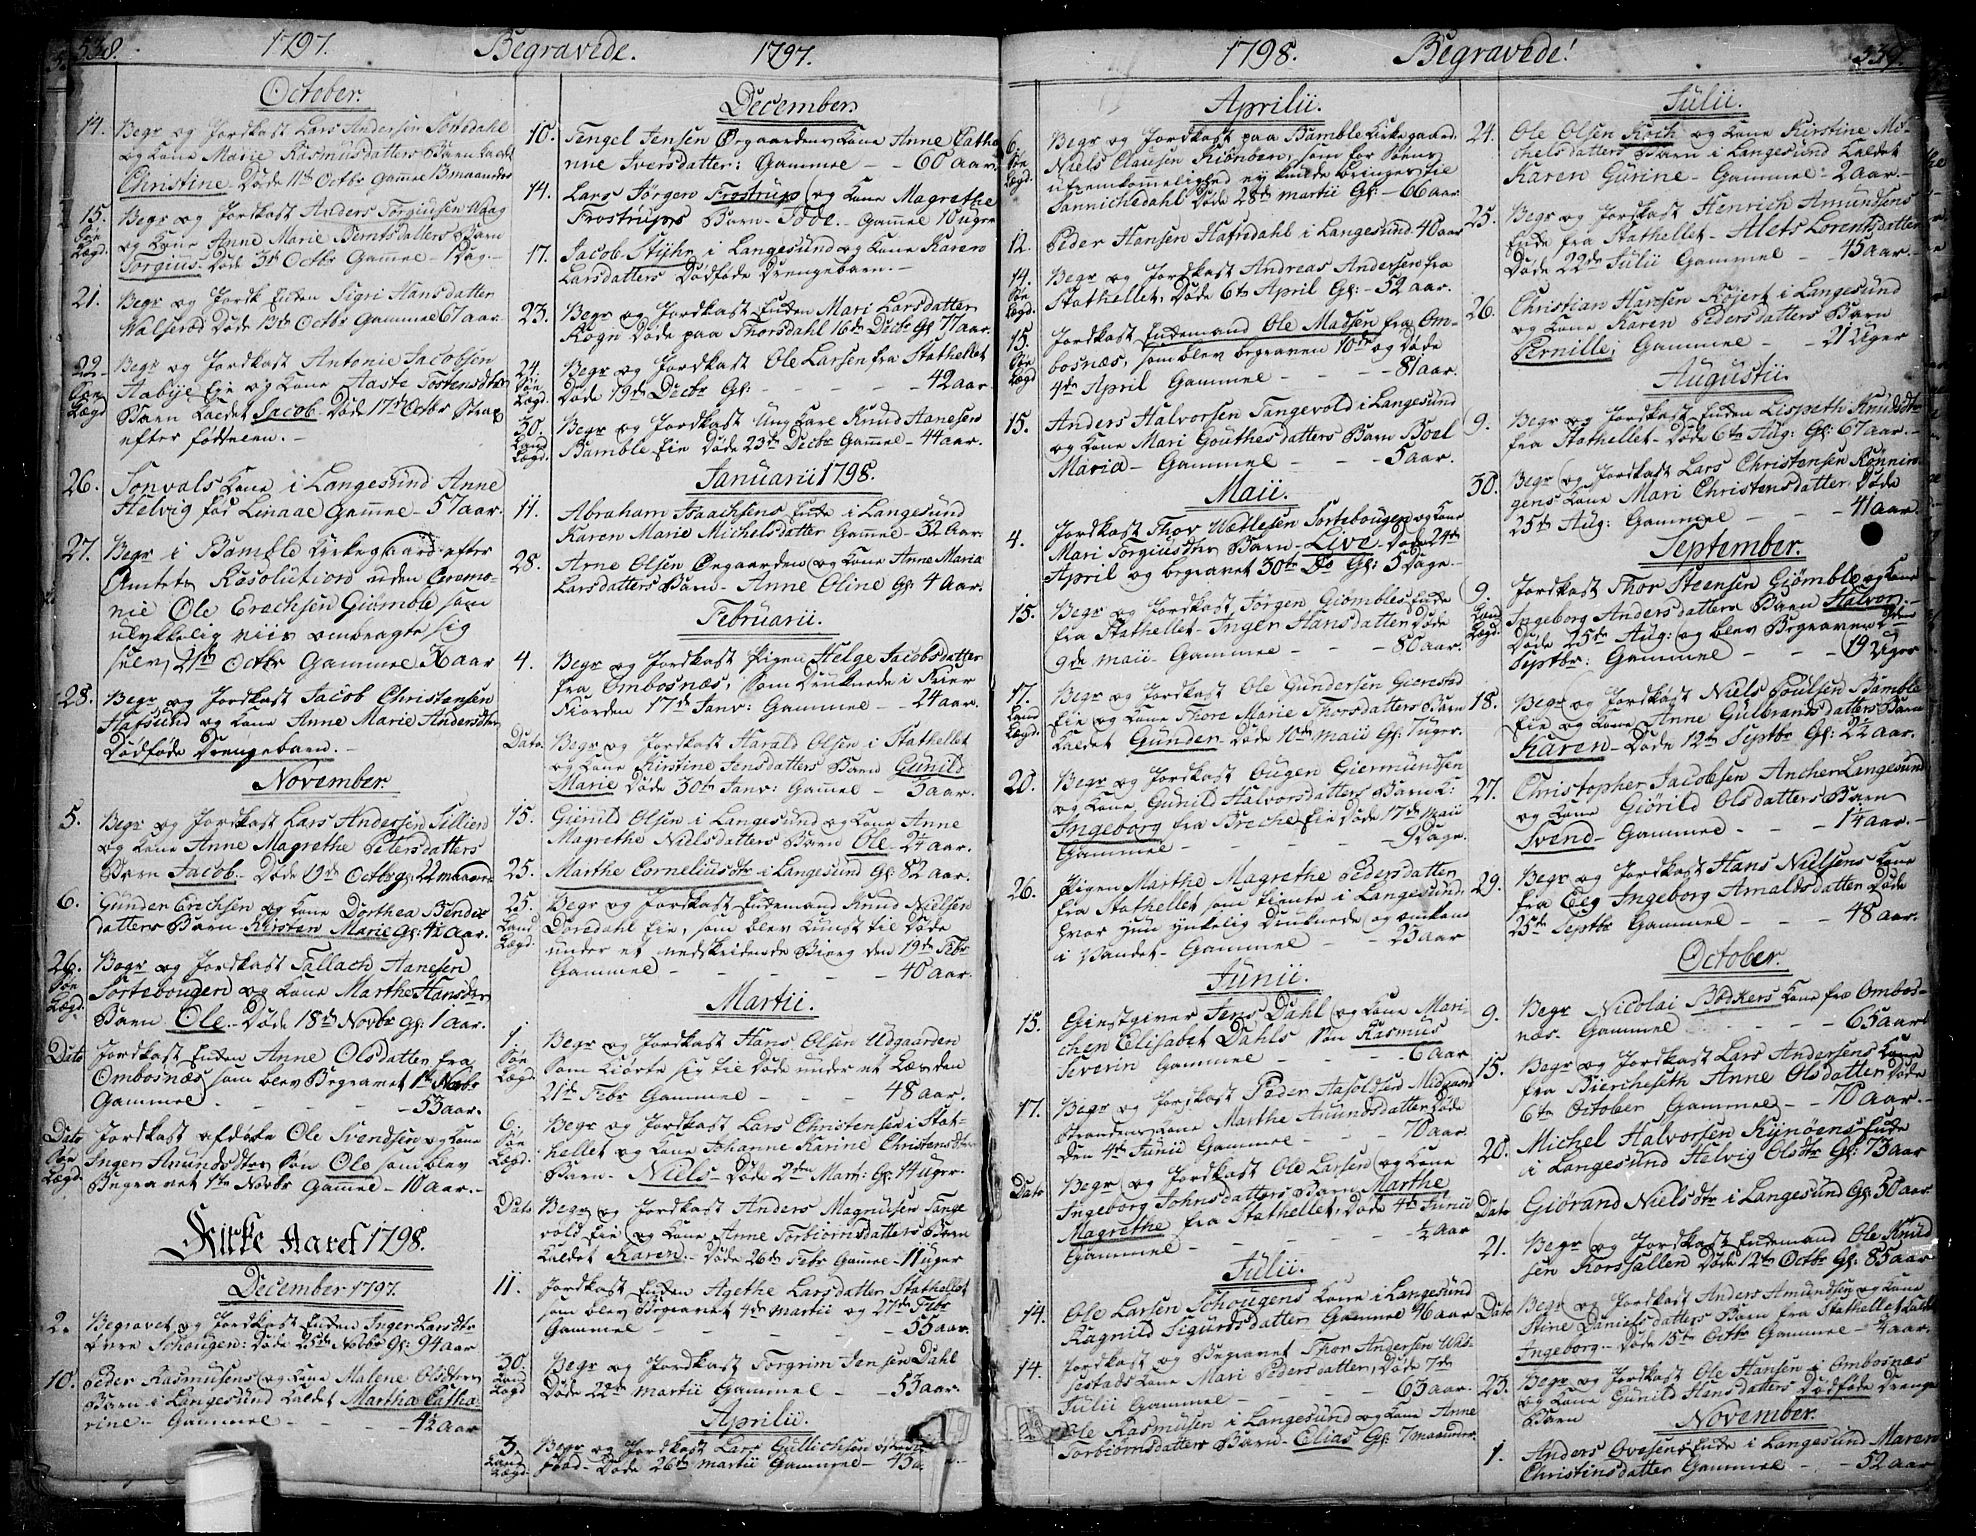 538.
1797. Begravede. 1797.
October.
14. Begr og Jordkast Lars Andersen
og Kone Marie Rasmusdatters Barn kaldt
Christine Døde 11te Octbr Gamel 13 maaneder
15. Begr og Jordkast Anders Torgiusen Waag
Søe og Kone Anne Marie Berntsdatters Barn
Lægd. Torgius. Døde 3de Octbr Gamel - 1 Dag.
21. Begr og Jordk Enken Sigri Hansdatter
Walserød Døde 13de Octbr Gammel 67 aar.
22. Begr og Jordkast Antonie Jacobsen
Søe Aabye Eie og Kone Aaste Tostensdtr
Lægd Barn kaldet Jacob. Døde 17de Octbr Strax
efter fødselen.
26. Sonvals Kone i Langesund Anne
Helvig fød Linaae Gamel - 57 aar
27. Begr i Bamble Kirkegaard efter
Amtets Resolution uden Ceremo-
nie Ole Erichsen Giømble som
ulykkelig viis ombragte sig
selv, 21de Octbr Gammel 36 aar
28. Begr og Jordkast Jacob Christensen
Hafsund og Kone Anne Marie Andersdtr
Dødføde Drengebarn.
November.
5. Begr og Jordkast Lars Andersen Tillien
og Kone Anne Magrethe Petersdatters
Barn Jacob. Døde 19de Octbr g: 22 maaner
6. Gunder Erichsen og Kone Dorthea Bender
datters Barn Kirsten Marie g: 4½ aar.
26. Begr og Jordkast Tallach Aanesen
Søe Sortebougen og Kone Marthe Hansdtr
Lægd. Barn Ole. Døde 18de Novbr g: 1 aar.
Dato Jordkast Enken Anne Olsdatter fra
Ombosnæs som blev Begravet 1te Novbr
Gammel - - - 53 aar.
Dato Jordkast afdøde Ole Svendsen og Kone
Søe Inger Amundsdtr Søn Ole som blev
Lægd Begravet 1te Novbr Gamel - 10 aar.
Kirke Aaret 1798.
December 1797.
2. Begravet og Jordkast Enken Inger Larsdtr
øvre Schougen: Døde 25de Novbr g: 94 aar
10. Peder Rasmusens og Kone Malene Olsdtrs
Barn i Langesund kaldet Martha Catha-
rine - Gammel - - 4½ aar
December
10. Tengel Jensen Ørgaardens Kone Anne Catha
rine Iversdatter: Gammel - 60 aar.
14. Lars Jørgen Frostrups og Kone Magrethe
Frostrups Barn - Gamel 10 uger
17. Jacob Styhr i Langesund og Kone Karen
Larsdatters Dødføde Drengebarn.
23. Begr og Jordkast Enken Mari Larsdatter
Rogn Døde paa Thorsdahl 16de Decbr g: 71 aar.
24. Begr og Jordkast Ole Larsen fra Stathellet
Søe Døde 19de Decbr g: - - -
Lægd. 42 aar
30. Begr og Jordkast Ung Karl Knud Aanesen
Land Bamble Eie Døde 23de Decbr Gamel - 44 aar.
Lægd.
Januarii 1798.
11. Abraham Isaachsens Enke i Langesund
Karen Marie Michelsdatter Gamel - 32 Aar.
28. Arne Olsen Ørgaarden og Kone Anne Maria
Larsdatters Barn - Anne Oline g: 4 Aar.
Februarii.
4. Begr og Jordkast Pigen Helge Jacobsdatter
fra Ombosnæs, som Druknede i Frier
Fiorden 17de Janv: Gammel - 24 aar.
Dato Begr og Jordkast Harald Olsen i Stathellet
og Kone Kirstine Jensdatters Barn Gunild
Marie Døde 30te Janv: Gamel - 3 aar.
15. Gunild Olsen i Langesund og Kone Anne
Magrethe Nielsdatters Barn Ole - 2¼ aar.
25. Marthe Corneliusdtr i Langesund g: 82 aar.
25. Begr og Jordkast Enkemand Knud Nielsen
Land Dørdahl Eie, som blev Kunst til Døde
Lægd. under et nedskridende Bierg den 19de Febr
Gammel - - - 40 aar.
Martii.
1. Begr og Jordkast Hans Olsen Udgaarden
Søe som kiørte sig til Døde under et Læs den
Lægd. 21de Febr Gammel - - 48 aar.
6. Begr og Jordkast Lars Christensen i Stat-
Søe hellet og Kone Johanne Karine Christensdtr
Lægd. Barn - Niels - Døde 2den Mart: g: 14 uger.
Dato Begr og Jordkast Anders Magnusen Tange
vold Eie og Kone Anne Torbiørnsdatters Barn
kaldet Karen. Døde 26de Febr Gamel - 11 uger
11. Jordkast Enken Agethe Larsdatter Stathellet
som blev Begravet 4de martii og 27de Febr
Gammel - - - 55 aar.
30. Begr og Jordkast Torgrim Jensen Dahl
Land Døde 22de martii Gammel - 53 aar.
Lægd
Aprilii.
3. Begr og Jordkast Lars Gullichsen
Land Døde 26de martii Gammel -
Lægd.
1798. Begravede! 539.
Aprilii.
6. Begr og Jordkast paa Bamble Kirkegaard
Søe Niels Clausen som for Søens
Lægd. ufremkommelighed ey kunde bringes til
Sannichedahl Døde 28de martii g: - 66 aar.
12. Peder Hansen Hafredahl i Langesund. 40 aar
14. Begr og Jordkast Andreas Andersen fra
Søe Stathellet, Døde 6te April g: - 52 aar.
Lægd.
15. Jordkast Enkemand Ole Madsen fra Om-
Søe bosnæs, som blev begraven 10de og Døde
Lægd 4de April Gammel - - - 81 aar.
15. Anders Halvorsen Tangevold i Langesund
og Kone Mari Gouthesdatters Barn Boel
Maria - Gammel - - 5 aar.
Maii.
4. Jordkast Thor Wetlesen Sortebougen og Kone
Mari Torgiusdtrs Barn - Live - Døde 24de
April og begravet 30te Do g: 5 Dage
15. Begr og Jordkast Jørgen Giømbles Enke
fra Stathellet - Inger Hansdatter Døde
9de maii - Gammel - - 80 aar.
17. Begr og Jordkast Ole Gundersen Gierestad
Land Eie og Kone Thore Marie Thorsdatters Barn
Lægd. kaldet Gunder - Døde 10de Maii g: 7 uger.
20. Begr og Jordkast Ougen Giermundsen
og Kone Gunild Halvorsdatters Barn k:
Ingeborg fra Breche Eie Døde 17de Maii
Gammel - - - 9 Dage.
26. Pigen Marthe Magrethe Pedersdatter
fra Stathellet som tiente i Langesund.
hvor hun ynkelig Druknede og omkom
i Vandet - Gammel - - 23 aar
Junii.
15. Giestgiver Jens Dahl og Kone Mari-
chen Elisabet Dahls Søn Rasmus
Severin Gammel - - - 6 aar
17. Begr og Jordkast Peder Aasoldsen Midgaard
Strandens Kone Marthe Amundsdatter Døde
den 4de Junii Gammel - - 70 aar.
Dato Begr og Jordkast Ole Larsen og Kone
Ingeborg Johnsdatters Barn Marthe
Magrethe fra Stathellet, Døde 4de Junii
Gammel - - - ½ aar
Julii.
14. Ole Larsen Schougens Kone i Langesund
Ragnild Sigurdsdatter Gammel 46 aar
14. Jordkast og Begravet Thor Andersen Wis-
sestads Kone Mari Pedersdatter, Døde 7de
Julii Gammel - - - 63 aar.
Ole Rasmusen i Langesund og Kone Anne
Torbiørnsdatters Barn - Elias g: 7 maaneder
Julii.
24. Ole Olsen Koch og Kone Kirstine Mi-
chelsdatters Barn i Langesund kaldet
Karen Gurine - Gammel - 2 aar.
25. Begr og Jordkast Henrich Amundsens
Enke fra Stathellet - Alets Lorentsdatter
Døde 22de Julii Gammel - 45 aar.
26. Christian Hansen Røjert i Langesund
og Kone Karen Pedersdatters Barn
Pernille; Gammel - - 21 Uger
Augustii.
9. Begr og Jordkast Enken Lispeth Knudsdtr
fra Stathellet - Døde 6te Aug: g: 67 aar.
30. Begr og Jordkast Lars Christensen Rønnin-
gens Kone Mari Christensdatter Døde
25de Aug: Gammel - - - 41 aar.
September.
9. Jordkast Thor Steensen Giømble og Kone
Land Ingeborg Andersdatters Barn Halvor.
Lægd. Døde 25de Aug: og blev Begraven 2den
Septbr: Gammel - - 19 Uger
18. Begr og Jordkast Niels Poulsen Bamble
Eie og Kone Anne Gulbrandsdatters Barn
Karen - Døde 12te Septbr g: 2½ aar.
27. Christopher Jacobsen Ancher Langesund
og Kone Giørild Olsdatters Barn
Svend - Gammel - - 1¼ aar.
29. Begr og Jordkast Hans Nielsens Kone
fra Eeg Ingeborg Arnoldsdatter Døde
25de Septbr Gammel - - 48 aar.
October.
9. Begr Nicolai Bødkers Kone fra Ombos-
næs. Gammel - - - 65 aar
15. Begr og Jordkast Lars Andersens Kone
fra Biercheseth Anne Olsdatter Døde
6te October Gammel - - 70 aar.
20. Michel Halvorsen Kynøens Enke
i Langesund Helvig Olsdtr g: 73 aar
Dato Giørand Nielsdtr i Langesund g: 50 aar.
21. Begr og Jordkast Enkemand Ole Knud
sen Korsfallen Døde 12te Octbr g: 85 aar
Dato Begr og Jordkast Anders Amundsen og Kone
Stine Danielsdatters Barn fra Stathellet kaldt
Ingeborg - Døde 15de Octbr Gammel - 4 aar.
23. Begr og Jordkast Ole Hansen i Ombosnæs
og Kone Gunild Hensdatters Dødføde Drenge
Barn
November.
1. Anders Ovesens Enke i Langesund Maren
Christinsdatter Gammel - - 52 aar